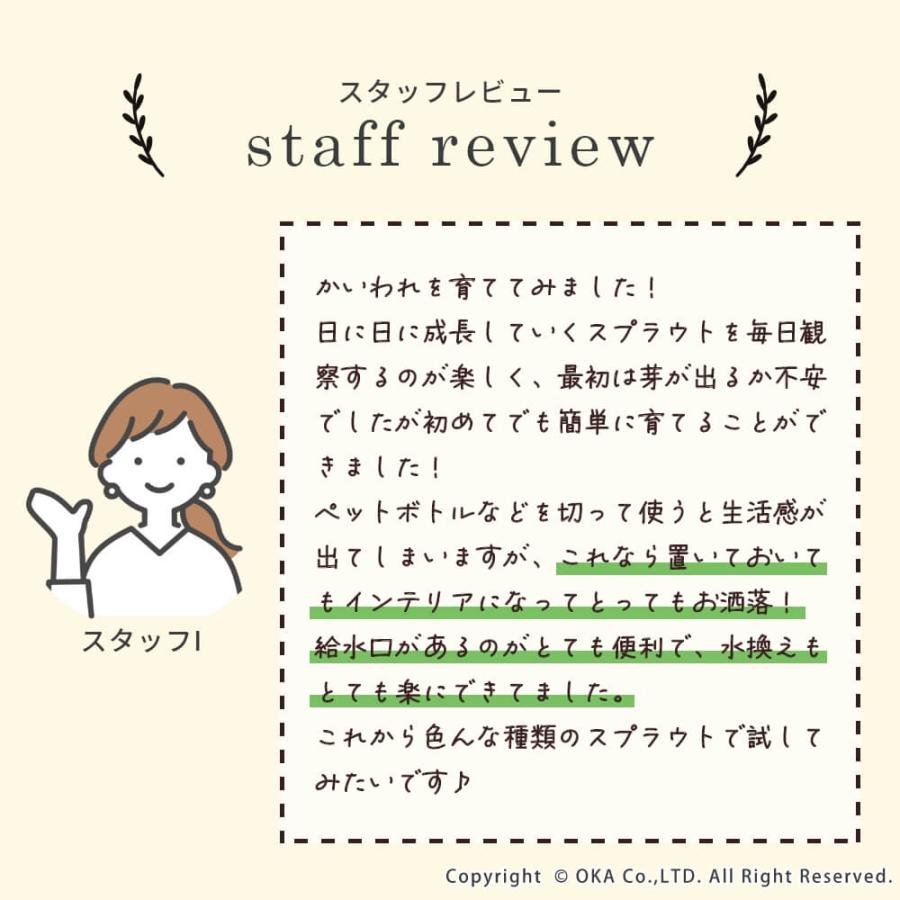 スタッフレビュー
staff review
かいわれを育ててみました！
日に日に成長していくスプラウトを毎日観
察するのが楽しく、最初は芽が出るか不安
でしたが初めてでも簡単に育てることがで
きました！
ペットボトルなどを切って使うと生活感が
出てしまいますが、これなら置いておいて
もインテリアになってとってもお洒落！
給水口があるのがとても便利で、水換えも
とても楽にできてました。
これから色んな種類のスプラウトで試して
みたいです♪
スタッフI
Copyright © OKA Co.,LTD. All Right Reserved.